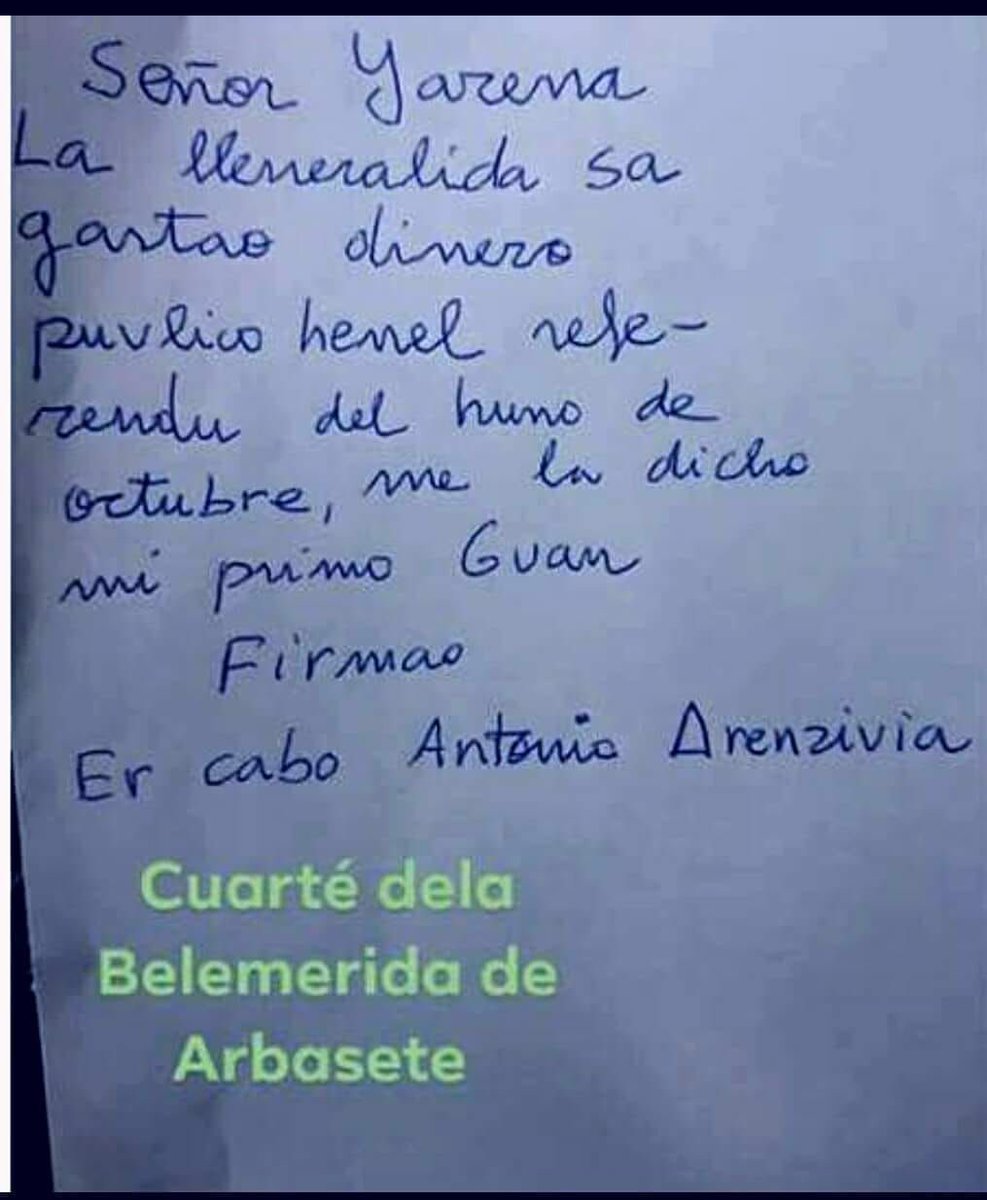 Señor Yarena
La lleneralida sa
gastao dinero
puvlico henel refe-
rendu del huno de
octubre, me la dicho
mi primo Guan
Firmao
Er cabo Antonio Arenzivia
Cuarté dela
Belemerida de
Arbasete